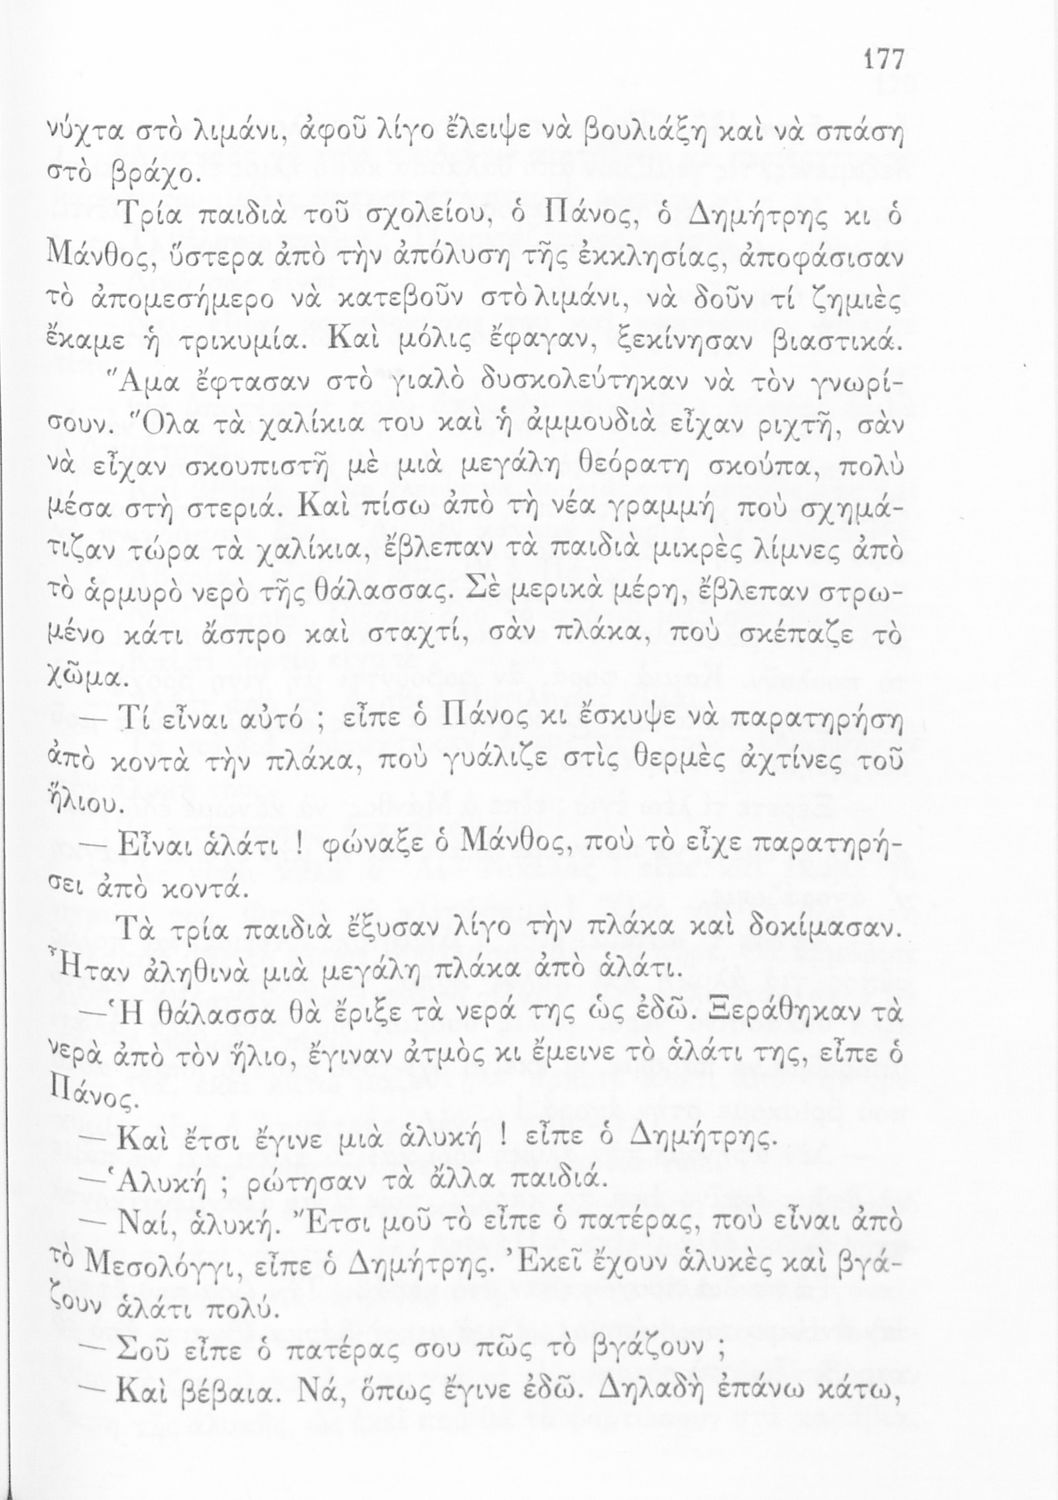 177
νύχτα στὸ λιμάνι, ἀφοῦ λίγο ἔλειψε νὰ βουλιάξη καὶ νὰ σπάση
στὸ βράχο.
Τρία παιδιὰ τοῦ σχολείου, ὁ Πάνος, ὁ Δημήτρης κι ὁ
Μάνθος, ὕστερα ἀπὸ τὴν ἀπόλυση τῆς ἐκκλησίας, ἀποφάσισαν
τὸ ἀπομεσήμερο νὰ κατεβοῦν στὸ λιμάνι, νὰ δοῦν τί ζημιὲς
ἔκαμε ἡ τρικυμία. Καὶ μόλις ἔφαγαν, ξεκίνησαν βιαστικά.
Ἅμα ἔφτασαν στὸ γιαλὸ δυσκολεύτηκαν νὰ τὸν γνωρί-
σουν. Ὅλα τὰ χαλίκια του καὶ ἡ ἀμμουδιὰ εἶχαν ριχτῆ, σὰν
νὰ εἶχαν σκουπιστῆ μὲ μιὰ μεγάλη θεόρατη σκούπα, πολὺ
μέσα στὴ στεριά. Καὶ πίσω ἀπὸ τὴ νέα γραμμή ποὺ σχημά-
τιζαν τώρα τὰ χαλίκια, ἔβλεπαν τὰ παιδιὰ μικρὲς λίμνες ἀπὸ
τὸ ἁρμυρὸ νερὸ τῆς θάλασσας. Σὲ μερικὰ μέρη, ἔβλεπαν στρω-
μένο κάτι ἄσπρο καὶ σταχτί, σὰν πλάκα, ποὺ σκέπαζε τὸ
χῶμα.
— Τί εἶναι αὐτό ; εἶπε ὁ Πάνος κι ἔσκυψε νὰ παρατηρήση
ἀπὸ κοντὰ τὴν πλάκα, ποὺ γυάλιζε στὶς θερμὲς ἀχτίνες τοῦ
ἥλιου.
— Εἶναι ἁλάτι ! φώναξε ὁ Μάνθος, ποὺ τὸ εἶχε παρατηρή-
σει ἀπὸ κοντά.
Τὰ τρία παιδιὰ ἔξυσαν λίγο τὴν πλάκα καὶ δοκίμασαν.
Ἦταν ἀληθινὰ μιὰ μεγάλη πλάκα ἀπὸ ἁλάτι.
—Ἡ θάλασσα θὰ ἔριξε τὰ νερά της ὡς ἐδῶ. Ξεράθηκαν τὰ
νερὰ ἀπὸ τὸν ἥλιο, ἔγιναν ἀτμὸς κι ἔμεινε τὸ ἁλάτι της, εἶπε ὁ
Πάνος.
— Καὶ ἔτσι ἔγινε μιὰ ἁλυκή ! εἶπε ὁ Δημήτρης.
—Ἁλυκή ; ρώτησαν τὰ ἄλλα παιδιά.
— Ναί, ἁλυκή. Ἔτσι μοῦ τὸ εἶπε ὁ πατέρας, ποὺ εἶναι ἀπὸ
τὸ Μεσολόγγι, εἶπε ὁ Δημήτρης. Ἐκεῖ ἔχουν ἁλυκὲς καὶ βγά-
ζουν ἁλάτι πολύ.
— Σοῦ εἶπε ὁ πατέρας σου πῶς τὸ βγάζουν ;
— Καὶ βέβαια. Νά, ὅπως ἔγινε ἐδῶ. Δηλαδὴ ἐπάνω κάτω,